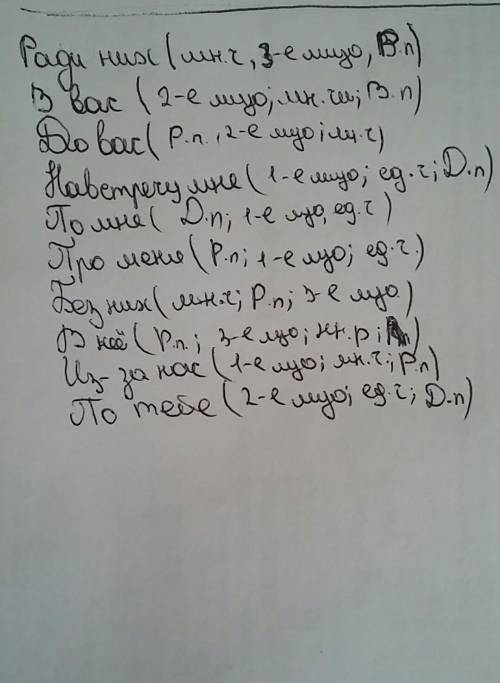 Ради них (мн.ч, 3-е лицо, В.п)
В вас (2-е лицо; мн.чи; В.п)
До вас (Р.п., 2-е лицо; мн.ч)
Навстречу мне (1-е лицо; ед.ч; Д.п)
По мне (Д.п; 1-е лцо, ед.ч)
Про меня (Р.п; 1-е лцо; ед.ч.)
Без них (мн.ч; Р.п; 3-е лцо)
В неё (Р.п; 3-е лцо; жн.р;
Из-за нас (1-е лцо; мн.ч; Р.п)
По тебе (2-е лицо; ед.ч; Д.п)